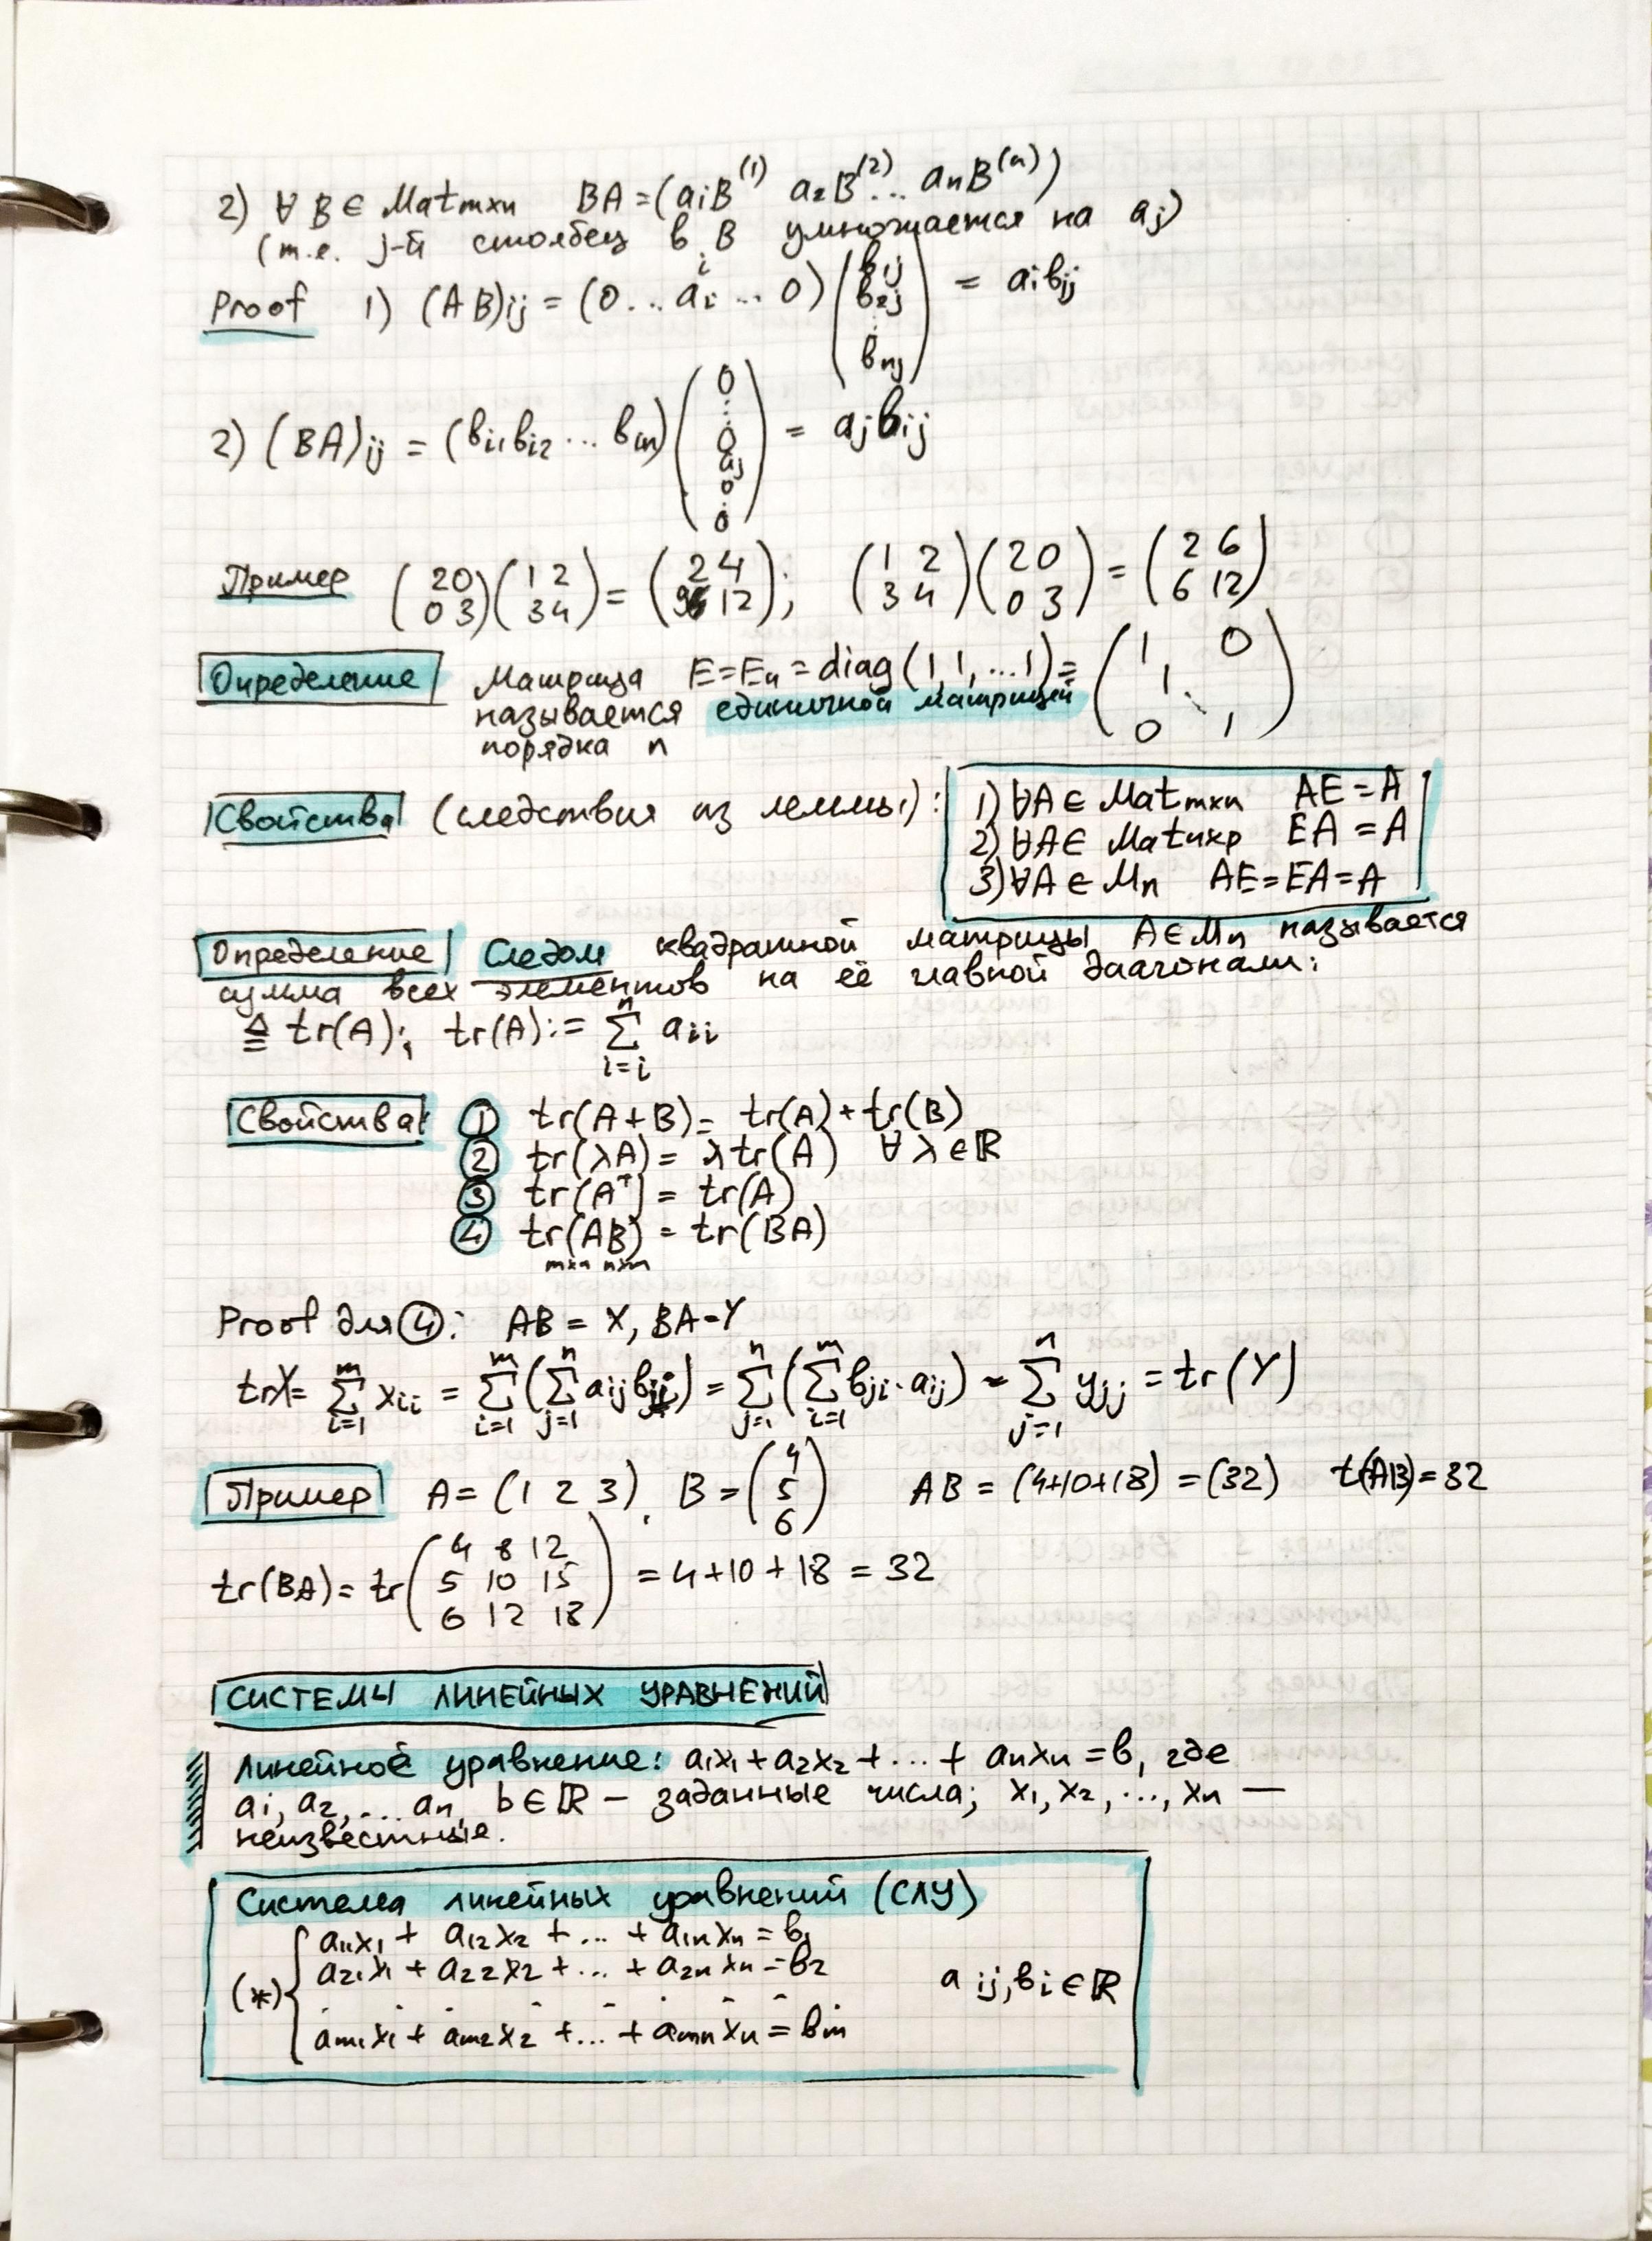 2) ∀ B ∈ Matmxn BA = (aiB⁽¹⁾ a₂B⁽²⁾... anB⁽ⁿ⁾)
(т.е. j-й столбец в B умножается на aj)
Proof 1) (AB)ij = (0 ... ai ... 0) (bij b2j ⋮ bnj) = aibij
2) (BA)ij = (bi1 bi2 ... bin) (0 ⋮ 0 aj 0 ⋮ 0) = ajbij
Пример (2 0 / 0 3)(1 2 / 3 4) = (2 4 / 9 12); (1 2 / 3 4)(2 0 / 0 3) = (2 6 / 6 12)
Определение Матрица E = En = diag(1,1,...1) = (1 0 / 1 ⋱ / 0 1)
называется единичной матрицей
порядка n
Свойства (следствия из леммы):
1) ∀A ∈ Matmxn AE = A
2) ∀A ∈ Matnxp EA = A
3) ∀A ∈ Mn AE = EA = A
Определение Следом квадратной матрицы A ∈ Mn называется
сумма всех элементов на её главной диагонали:
≙ tr(A); tr(A) := ∑ⁿi=i aii
Свойства ① tr(A+B) = tr(A) + tr(B)
② tr(λA) = λtr(A) ∀ λ ∈ ℝ
③ tr(Aᵀ) = tr(A)
④ tr(AB) = tr(BA)
mxn nxm
Proof для ④: AB = X, BA = Y
trX = ∑ᵐi=1 xii = ∑ᵐi=1 (∑ⁿj=1 aij bji) = ∑ⁿj=1 (∑ᵐi=1 bji · aij) = ∑ⁿj=1 yjj = tr(Y)
Пример A = (1 2 3), B = (4 5 6) AB = (4+10+18) = (32) tr(AB) = 32
tr(BA) = tr (4 8 12 / 5 10 15 / 6 12 18) = 4+10+18 = 32
СИСТЕМЫ ЛИНЕЙНЫХ УРАВНЕНИЙ
Линейное уравнение: a₁x₁ + a₂x₂ + ... + anxn = b, где
ai, a₂, ... an, b ∈ ℝ — заданные числа; x₁, x₂, ..., xn —
неизвестные.
Система линейных уравнений (СЛУ)
a₁₁x₁ + a₁₂x₂ + ... + a₁nxn = b₁
a₂₁x₁ + a₂₂x₂ + ... + a₂nxn = b₂
(*) aij, bi ∈ ℝ
am₁x₁ + am₂x₂ + ... + amnxn = bm